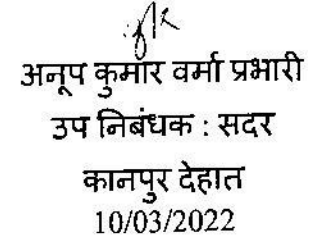 अनूप कुमार वर्मा प्रभारी
उप निबंधक : सदर
कानपुर देहात
10/03/2022